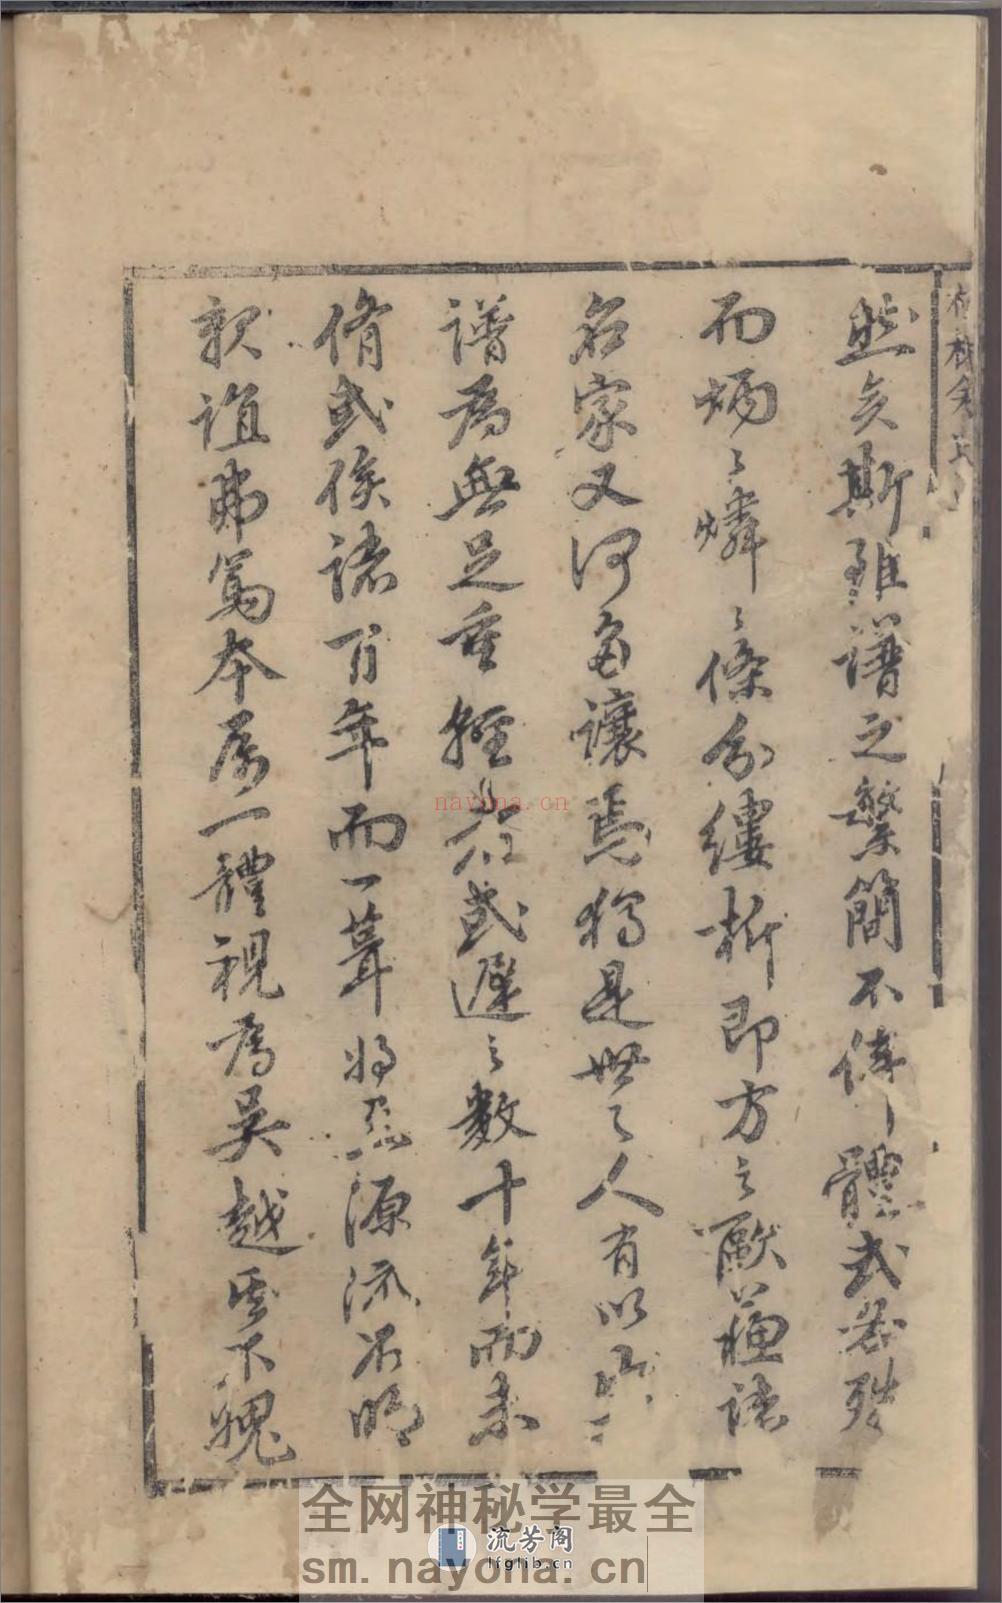 然矣斯雖譜之繁簡不侔體式若殊
而炳々燐々條分縷析即方之歐蘓諸
名家又何多讓焉猗是世之人有以
譜為無足重輕者或遲之數十年而未
脩或俟諸百年而一葺將至源流不明
親誼弗篤本屬一體視為吳越豈不愧
nayona.cn
全网神秘学最全
流芳阁
lfglib.cn
sm.nayona.cn